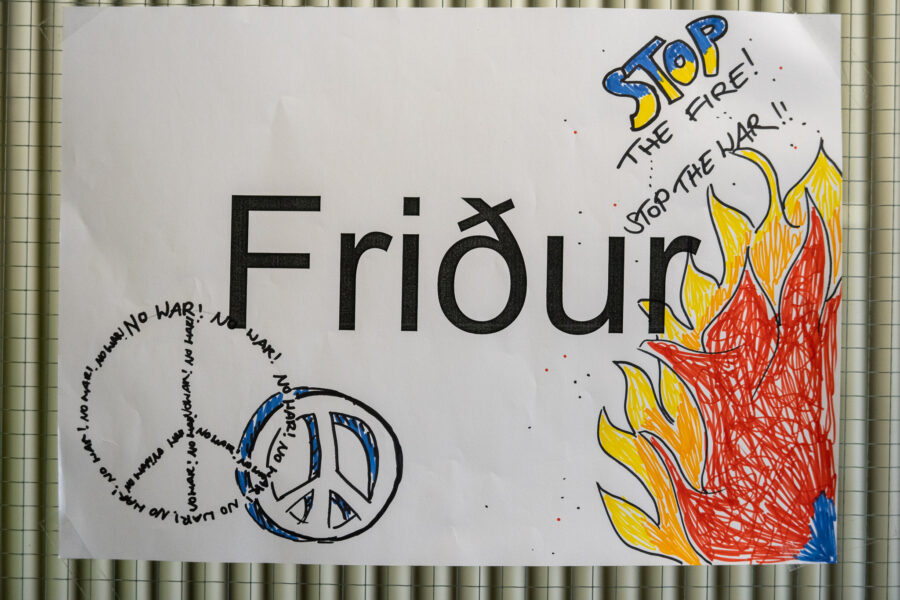 STOP
THE FIRE!
STOP THE WAR!!
Friður
NO WAR! NO WAR! NO WAR! NO WAR! NO WAR!
NO WAR! NO WAR! NO WAR! NO WAR!
NO WAR! NO WAR! NO WAR!
NO WAR!